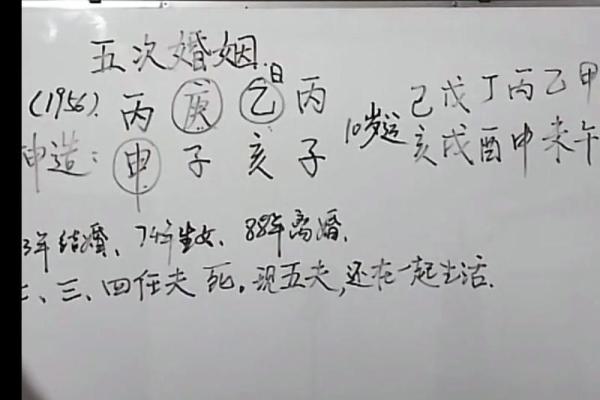 五次婚姻.
日
(1956). 丙 庚 乙 丙 10岁运 己戊丁丙乙甲
坤造: 申 子 亥 子 亥戌酉申未午
3年结婚、74年生女、88年离婚.
、三、四任夫死。现五夫,还在一起生活.